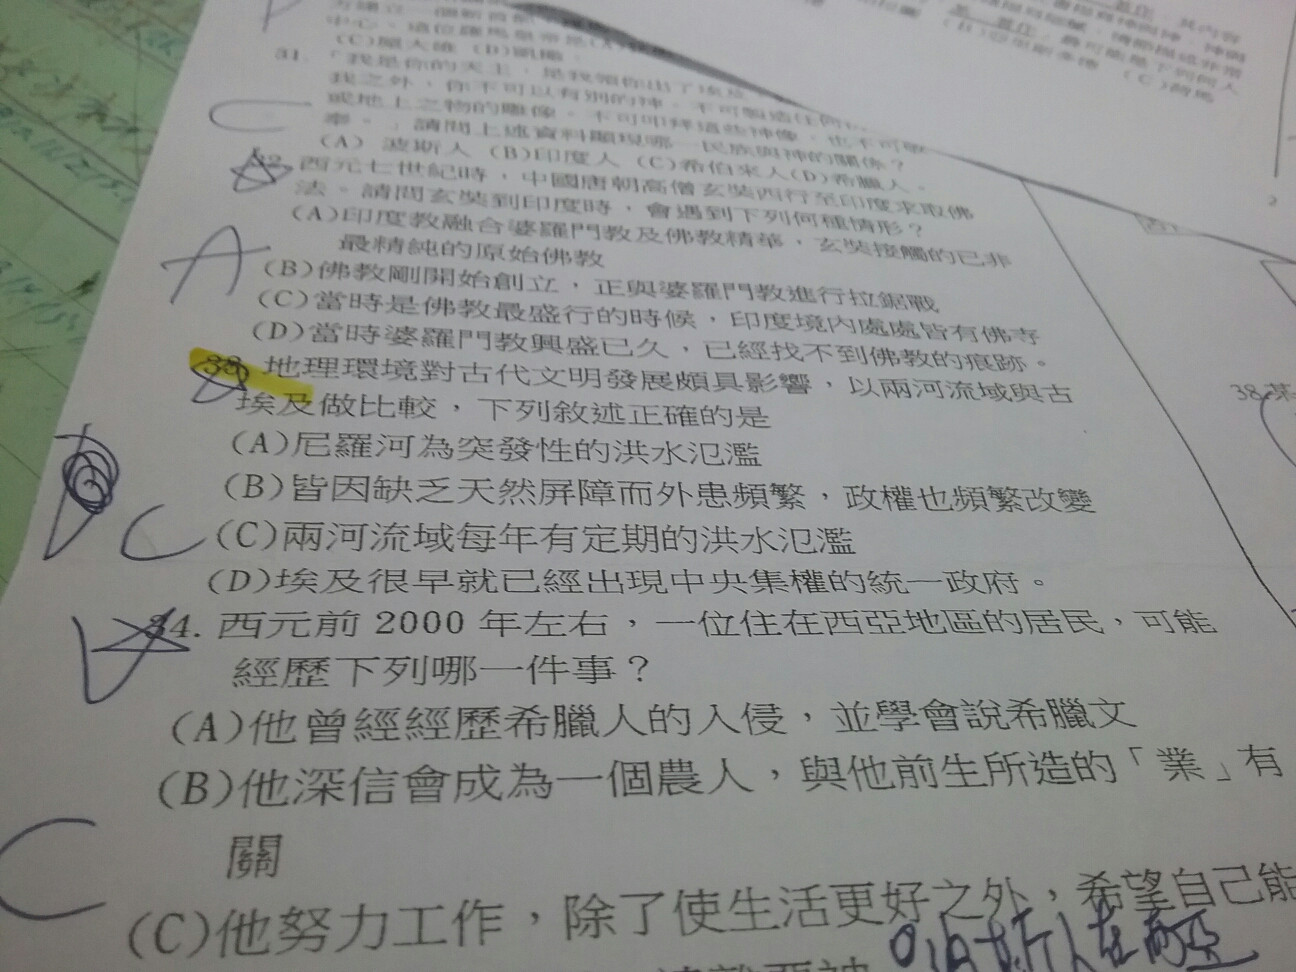 中心。這位羅馬皇帝是(A)
(C)屋大維 (D)凱撒。
31. 「我是你的天主,是我領你出了埃及
我之外,你不可以有別的神。不可製造任何
或地上之物的雕像。不可叩拜這些神像,也不可敬
奉。」請問上述資料顯現哪一民族與神的關係?
(A) 波斯人 (B)印度人 (C)希伯來人(D)希臘人。
C
32 西元七世紀時,中國唐朝高僧玄奘西行至印度求取佛
法。請問玄奘到印度時,會遇到下列何種情形?
(A)印度教融合婆羅門教及佛教精華,玄奘接觸的已非
最精純的原始佛教
A
(B)佛教剛開始創立,正與婆羅門教進行拉鋸戰
(C)當時是佛教最盛行的時候,印度境內處處皆有佛寺
(D)當時婆羅門教興盛已久,已經找不到佛教的痕跡。
33 地理環境對古代文明發展頗具影響,以兩河流域與古
埃及做比較,下列敘述正確的是
(A)尼羅河為突發性的洪水氾濫
(B)皆因缺乏天然屏障而外患頻繁,政權也頻繁改變
C
(C)兩河流域每年有定期的洪水氾濫
(D)埃及很早就已經出現中央集權的統一政府。
34. 西元前 2000 年左右,一位住在西亞地區的居民,可能
經歷下列哪一件事?
(A)他曾經經歷希臘人的入侵,並學會說希臘文
(B)他深信會成為一個農人,與他前生所造的「業」有
關
C
(C)他努力工作,除了使生活更好之外,希望自己能
38.某